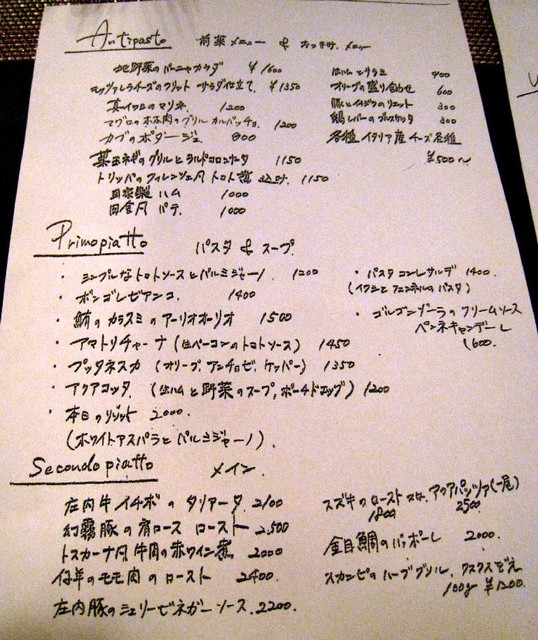 Antipasto 前菜メニュー & おつまみメニュー
地野菜のバーニャカウダ ¥1600
モッツァレラチーズのフリット サラダ仕立て ¥1350
真イワシのマリネ 1200
マグロのホホ肉のグリル カルパッチョ 1200
カブのポタージュ 800
葉玉ネギのグリルとラルドコロンナータ 1150
トリッパのフィレンツェ風 トマト煮込み 1150
自家製ハム 1000
田舎風パテ 1000
生ハムとサラミ 900
オリーブの盛り合わせ 600
豚とイチジクのリエット 300
鶏レバーのブルスケッタ 300
各種イタリア産チーズ各種
¥500〜
Primopiatto パスタ & スープ
・シンプルなトマトソースとパルミジャーノ 1200
・ボンゴレビアンコ 1400
・鮪のカラスミのアーリオオーリオ 1500
・アマトリチャーナ (生ベーコンのトマトソース) 1450
・プッタネスカ (オリーブ、アンチョビ、ケッパー) 1350
・アクアコッタ (生ハムと野菜のスープ、ポーチドエッグ) 1200
・本日のリゾット 2000.
(ホワイトアスパラとパルミジャーノ).
・パスタコンレサルデ 1400.
(イワシとフェンネルのパスタ)
・ゴルゴンゾーラのクリームソース
ペンネキャンデーレ
1600.
Secondopiatto メイン
庄内牛イチボのタリアータ 2100
幻霧豚の肩ロース ロースト 2,500
トスカーナ風牛肉の赤ワイン煮 2000
仔羊のモモ肉のロースト 2400.
庄内豚のシェリービネガーソース 2200.
スズキのロースト アクアパッツァ(一尾)
1800 2500
金目鯛のヴァポーレ 2000.
スカンピのハーブグリル、クスクスぞえ
100g ¥1200.